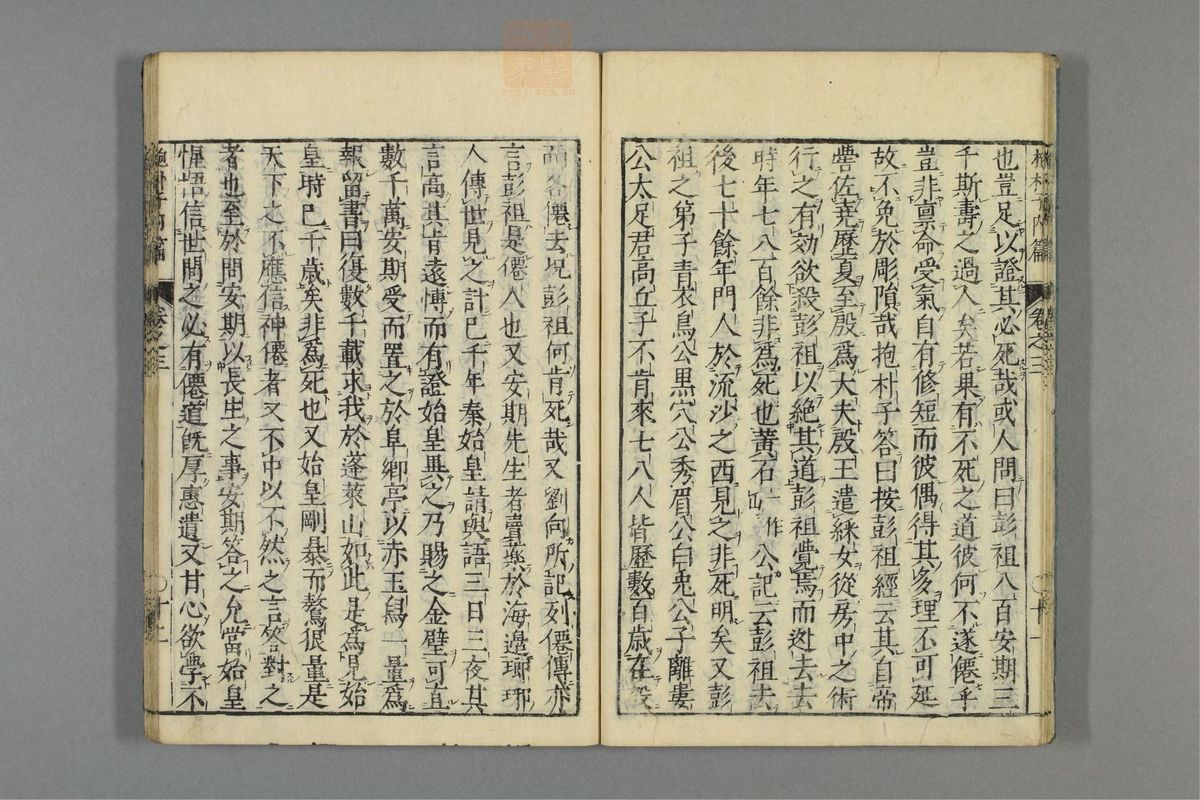 抱朴子内篇 卷之三 十一
也豈足以證其必死哉或人問曰彭祖八百安期三
千斯壽之過人矣若果有不死之道彼何不遂僊乎
豈非禀命受氣自有修短而彼偶得其多理不可延
故不免於彫隕哉抱朴子答曰按彭祖經云其自帝
嚳佐堯歷夏至殷爲大夫殷王遣綵女從房中之術
行之有効欲殺彭祖以絶其道彭祖覺焉而迯去去
時年七八百餘非爲死也黄石一作山公記云彭祖去
後七十餘年門人於流沙之西見之非死明矣又彭
祖之第子青衣烏公黒穴公秀眉公白兎公子離婁
公太足君高丘子不肯來七八人皆歷數百歳在殷
而各僊去况彭祖何肯死哉又劉向所記列僊傳亦
言彭祖是僊人也又安期先生者賣藥於海邉瑯琊
人傳世見之計已千年秦始皇請與語三日三夜其
言高其肯遠博而有證始皇異之乃賜之金璧可直
數千萬安期受而置之於阜卿亭以赤玉舄一量爲
報留書曰復數千載求我於蓬萊山如此是爲見始
皇時已千歳矣非爲死也又始皇剛暴而驁很量是
天下之不應信神僊者又不中以不然之言答對之
者也至於問安期以長生之事安期答之允當始皇
惺悟信世間之必有僊道既厚惠遺又甘心欲學不
抱朴子内篇 卷之三 十二